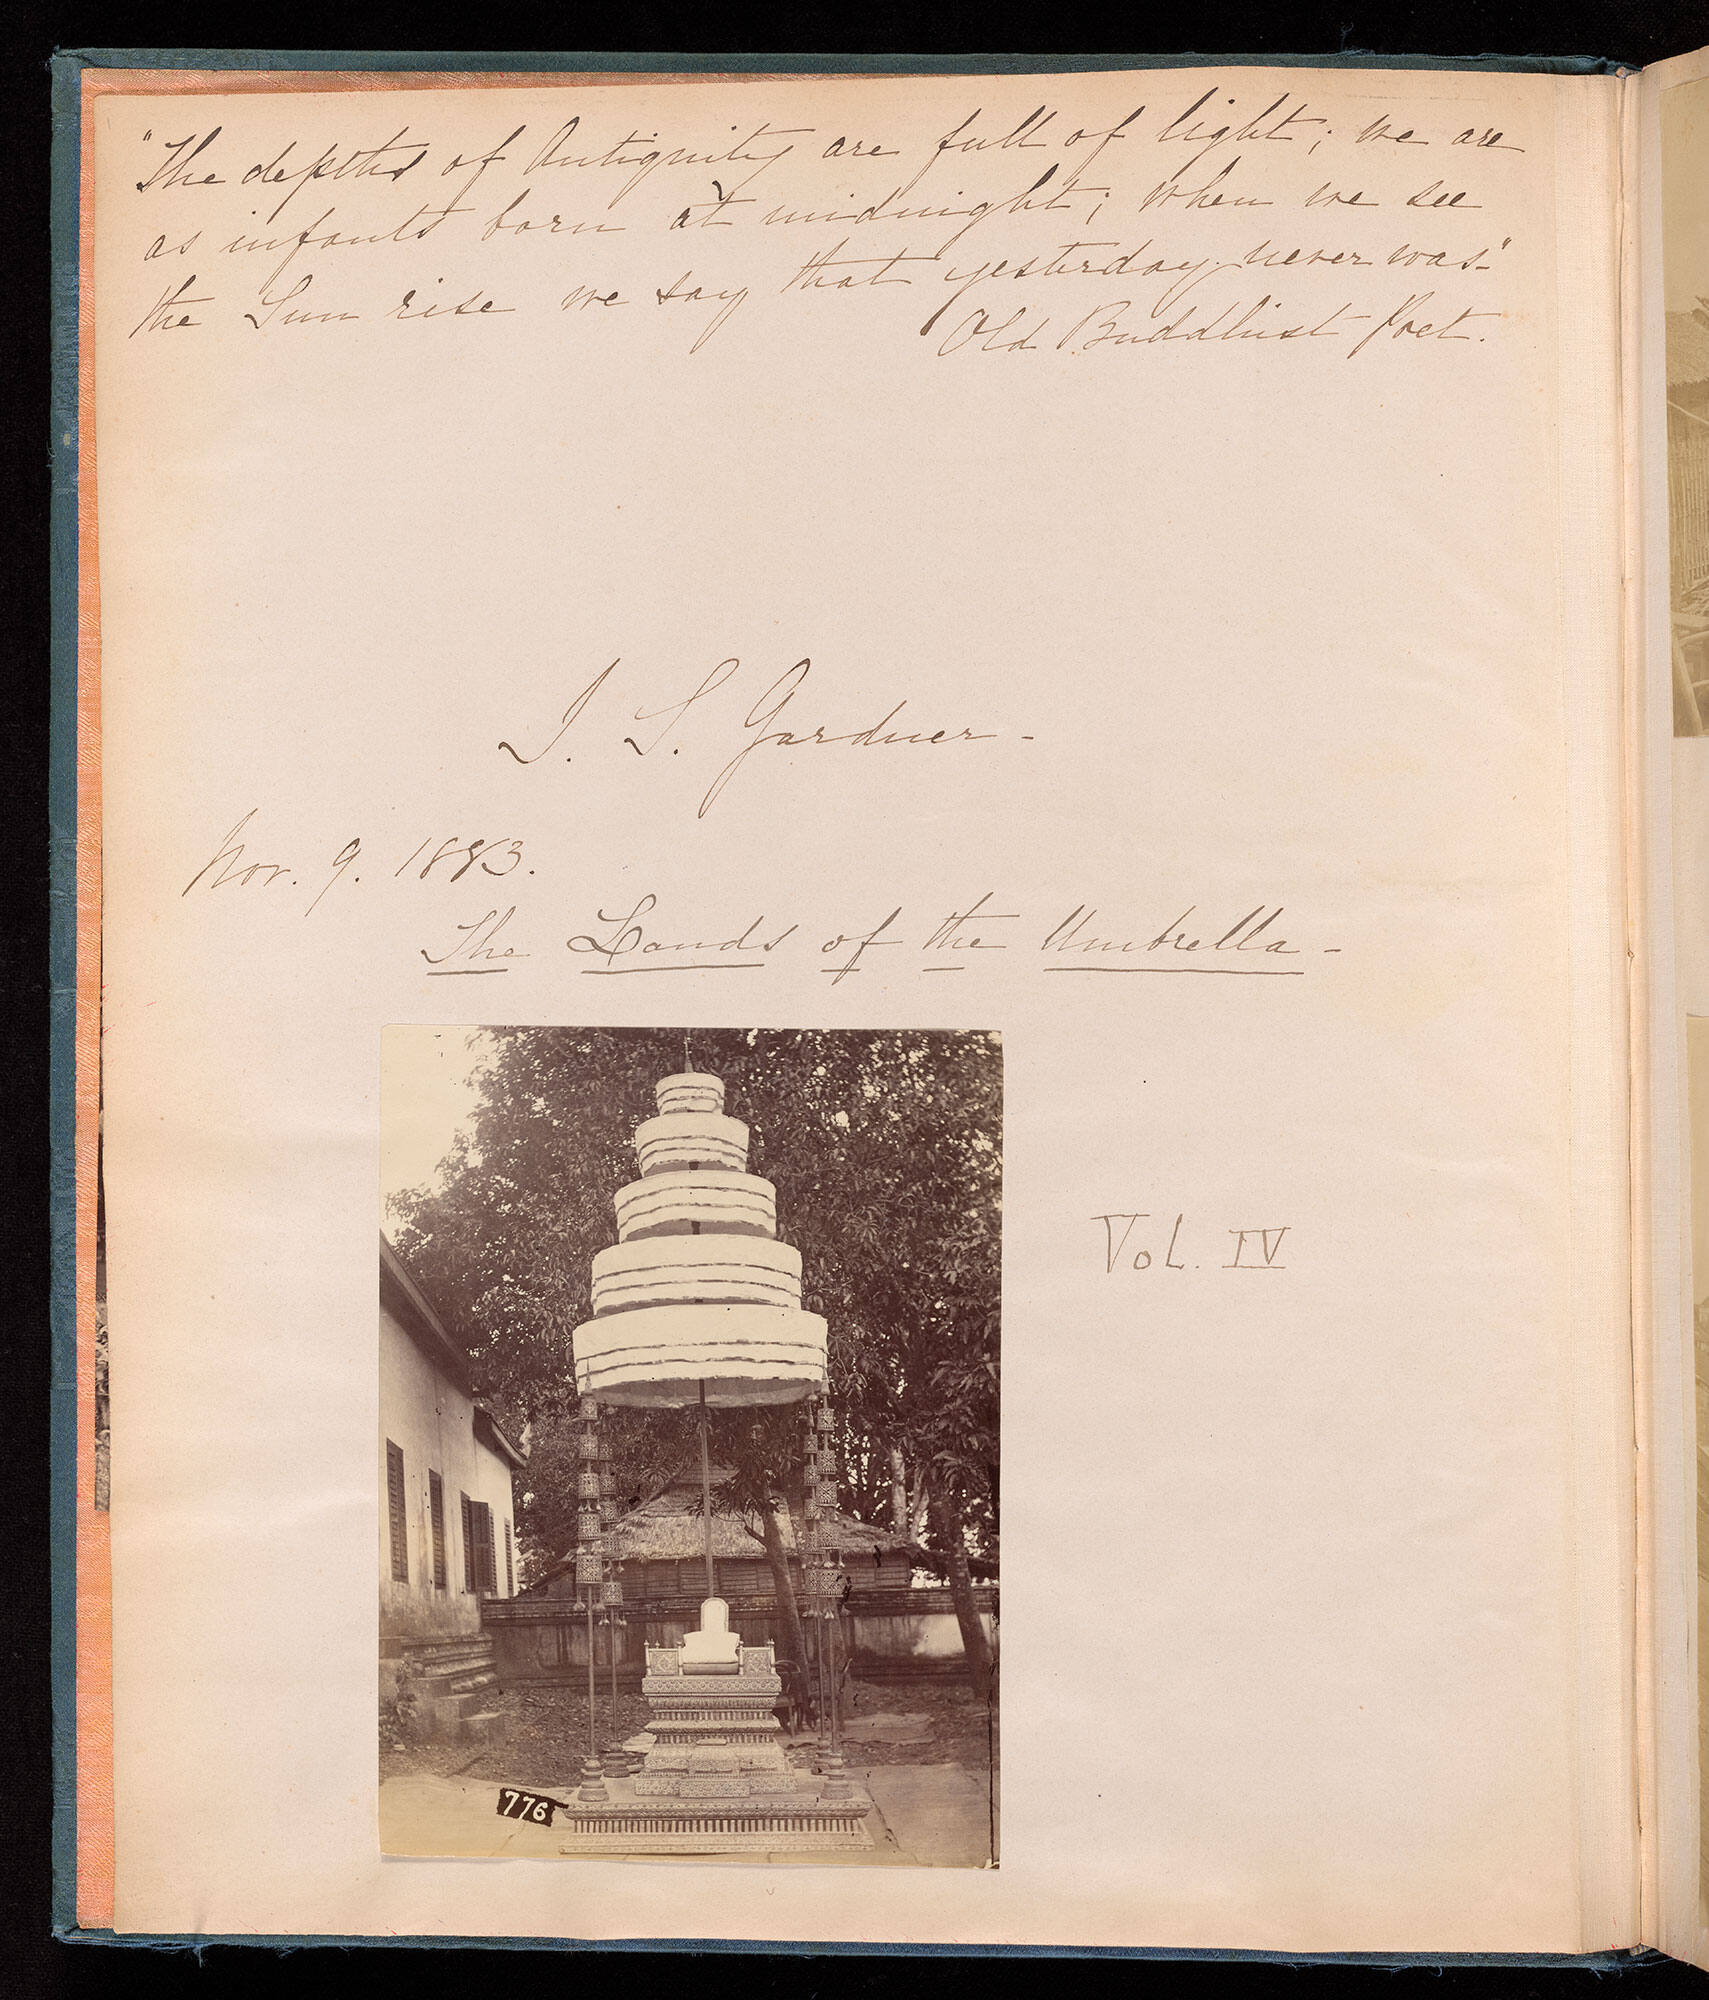 "The depths of Antiquity are full of light; we are
as infants born at midnight; when we see
the Sun rise we say that yesterday never was."
Old Buddhist Poet.
I. S. Gardner -
Nov. 9. 1883.
The Lands of the Umbrella -
Vol. IV
776